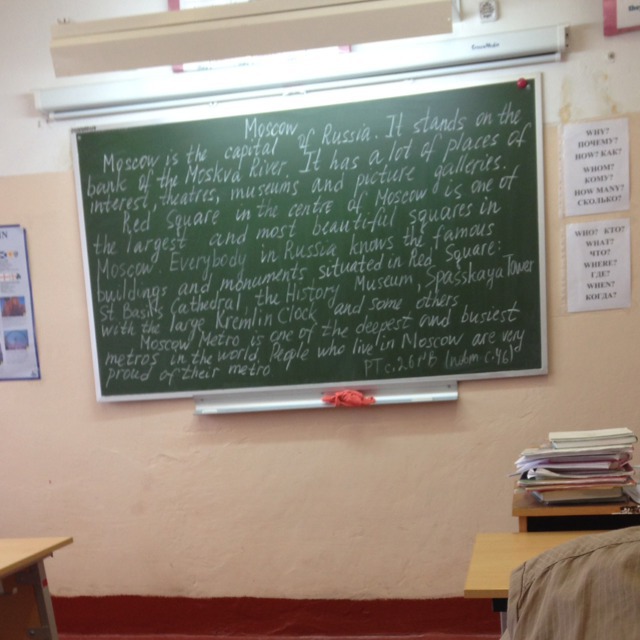 Moscow
Moscow is the capital of Russia. It stands on the
bank of the Moskva River. It has a lot of places of
interest, theatres, museums and picture galleries.
Red Square in the centre of Moscow is one of
the largest and most beautiful squares in
Moscow Everybody in Russia knows the famous
buildings and monuments situated in Red Square:
St Basil's Cathedral, the History Museum, Spasskaya Tower
with the large Kremlin Clock and some others
Moscow Metro is one of the deepest and busiest
metros in the world. People who live in Moscow are very
proud of their metro
WHY?
ПОЧЕМУ?
HOW? КАК?
WHOM?
КОМУ?
HOW MANY?
СКОЛЬКО?
WHO? КТО?
WHAT?
ЧТО?
WHERE?
ГДЕ?
WHEN?
КОГДА?